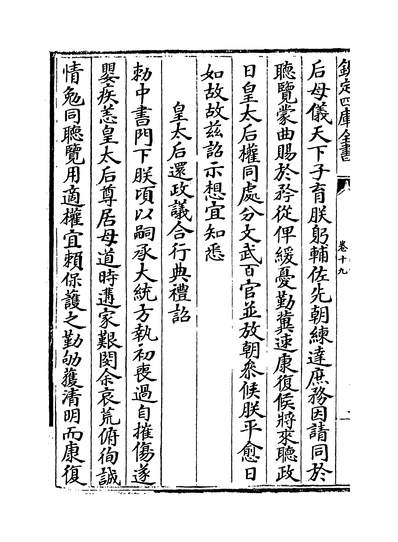 欽定四庫全書
卷十九
后母儀天下子育朕躬輔佐先朝練達庶務因請同於
聽覽蒙曲賜於矜從俾緩憂勤冀速康復候將來聽政
日皇太后權同處分文武百官並放朝叅候朕平愈日
如故故兹詔示想宜知悉
皇太后還政議合行典禮詔
勅中書門下朕頃以嗣承大統方執初喪過自摧傷遂
嬰疾恙皇太后尊居母道時遘家艱閔余哀荒俯徇誠
情勉同聽覽用適權宜賴保護之勤劬獲清明而康復